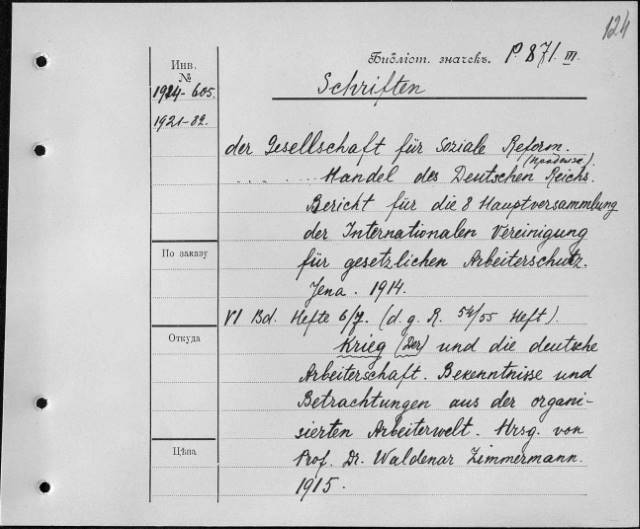 124
Библіот. значекъ. P. 871. III.
Инв.
№
1924-605.
1921-82.
Schriften
der Gesellschaft für Soziale Reform.
Handel des Deutschen Reichs.
Bericht für die 8 Hauptversammlung
der Internationalen Vereinigung
für gesetzlichen Arbeiterschutz.
Jena. 1914.
VI Bd. Hefte 6/7. (d. g. R. 54/55 Heft).
Krieg (Der) und die deutsche
Arbeiterschaft. Bekenntnisse und
Betrachtungen aus der organi-
sierten Arbeiterwelt. Hrsg. von
Prof. Dr. Waldenar Zimmermann.
1915.
По заказу
Откуда
Цѣна